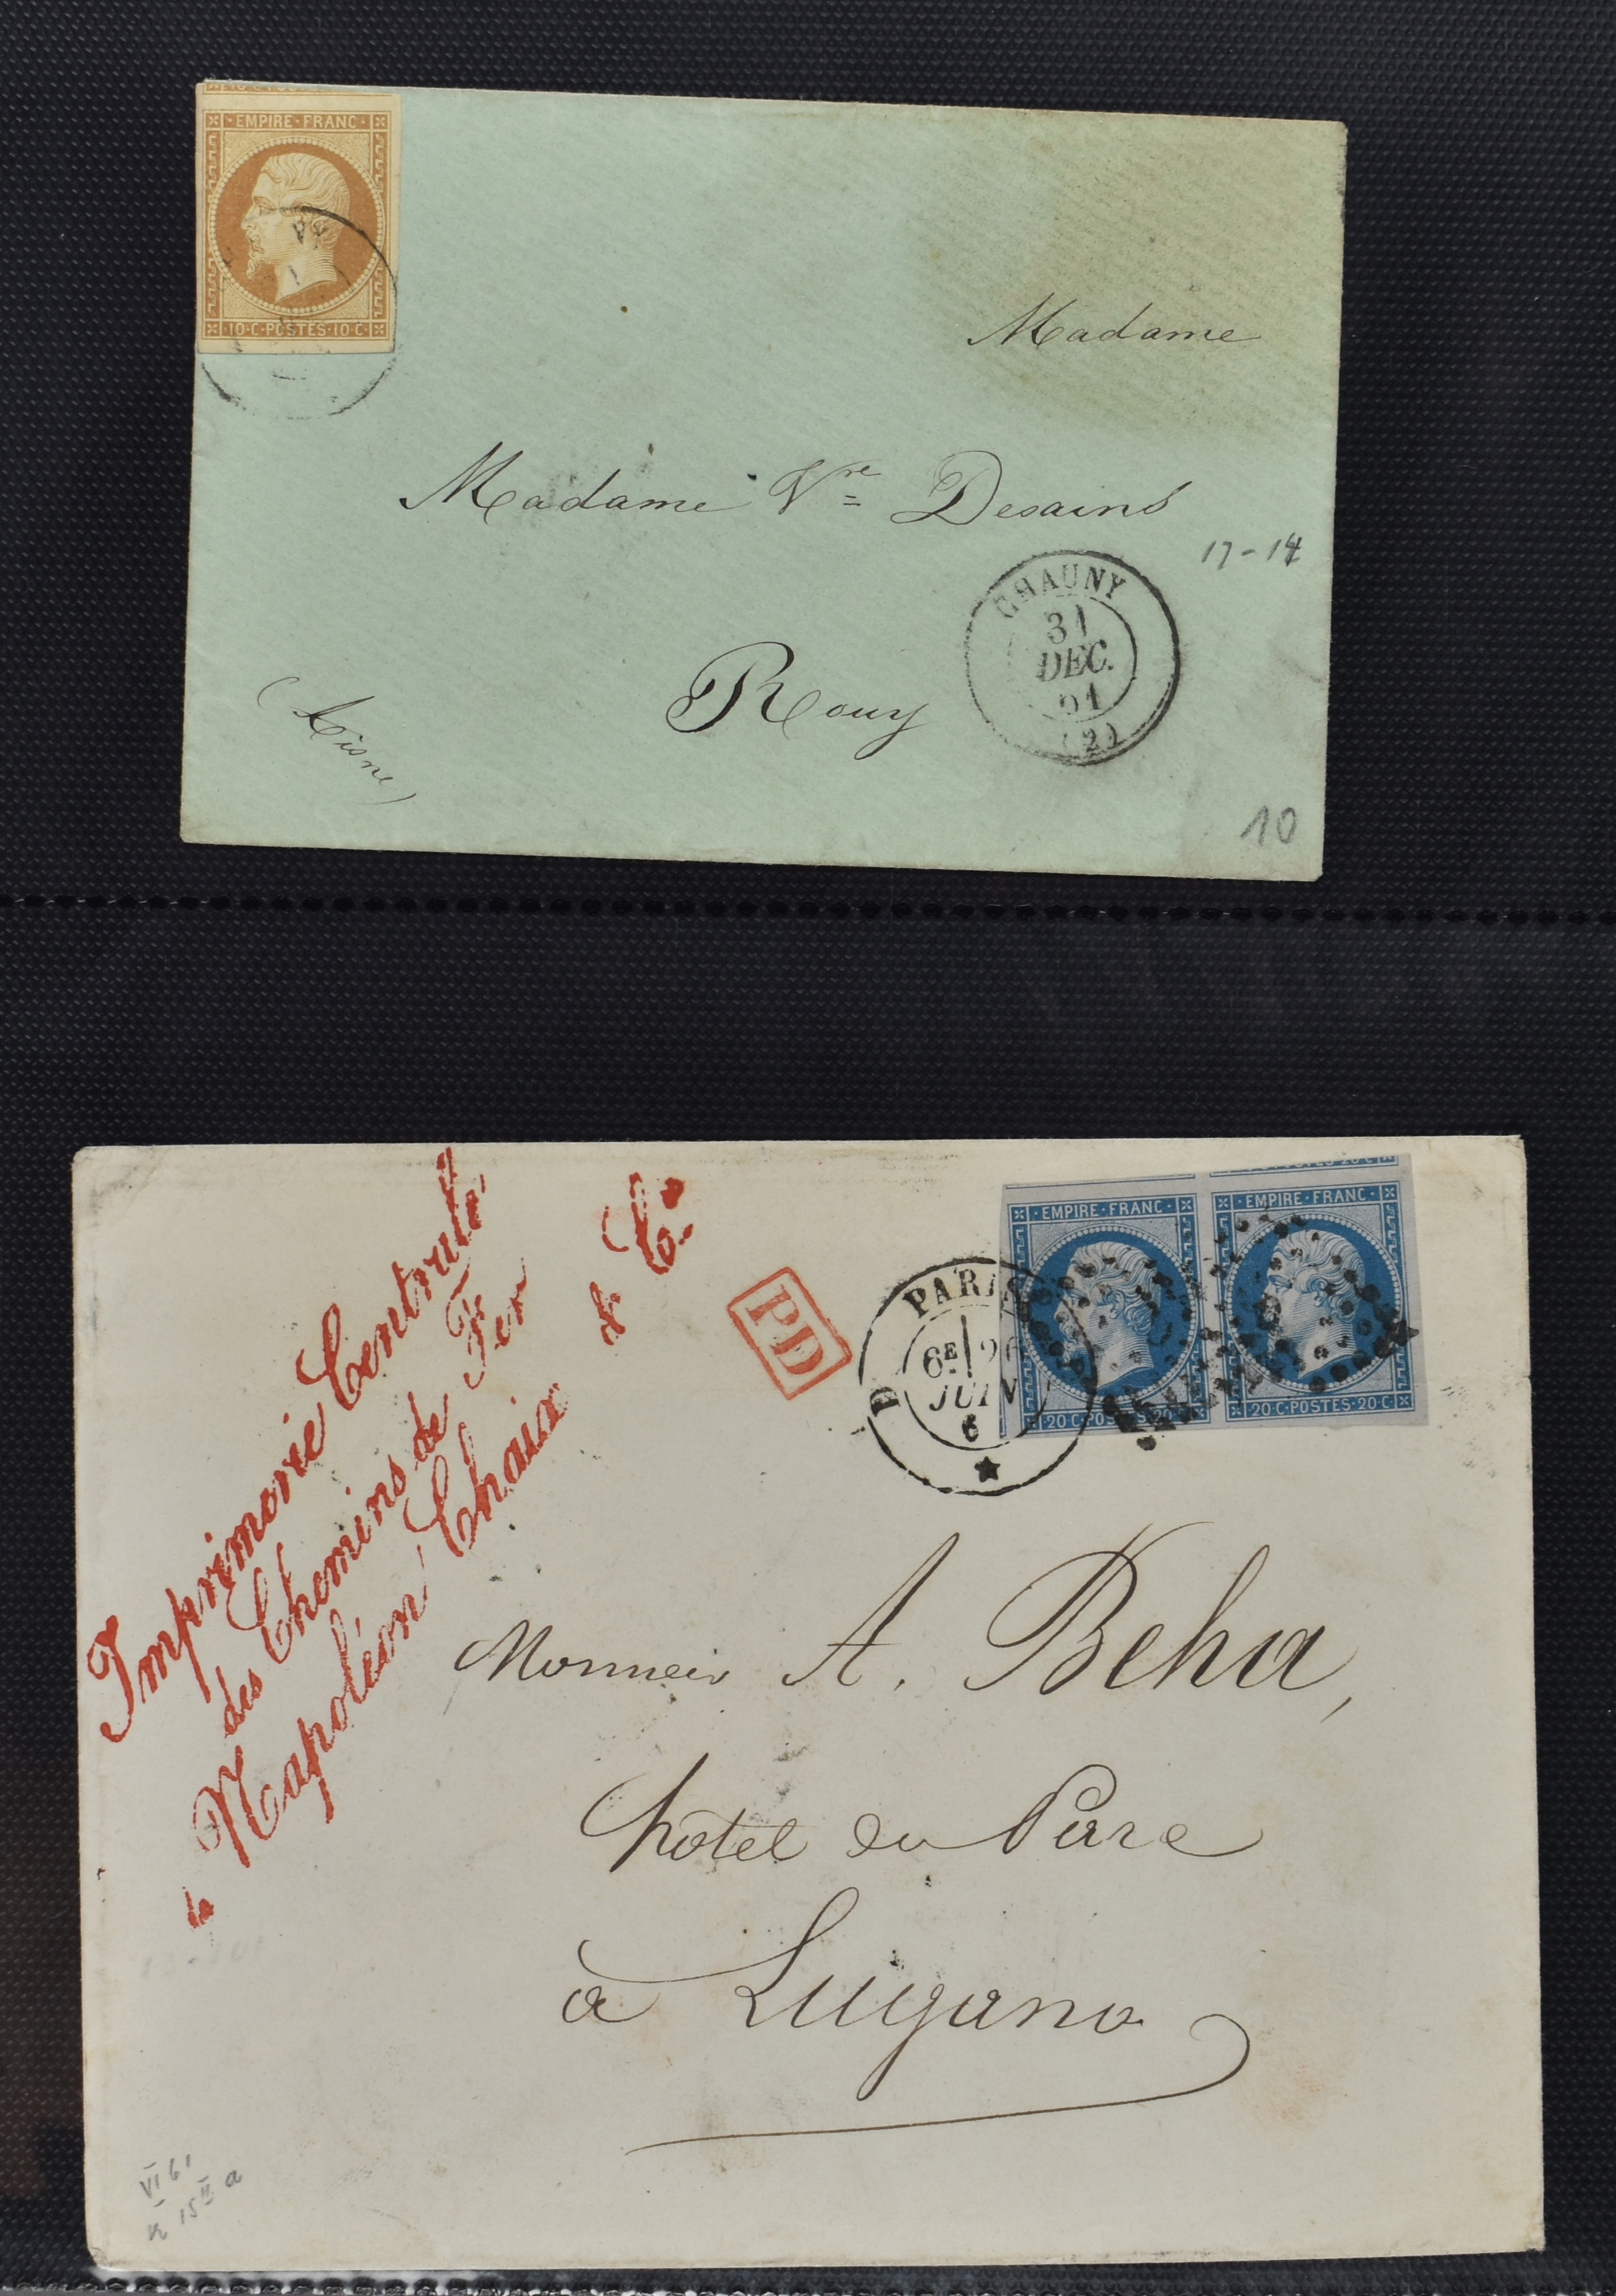 EMPIRE·FRANC·
10·C·POSTES·10·C·
Madame
Madame Vve Desains
17-14
CHAUNY
31
DEC.
61
(2)
Rouy
(Aisne)
10
Imprimerie Centrale
des Chemins de Fer
Napoléon Chaix & C.
PD
PARIS
6E 26
JUIN
6
D
EMPIRE·FRANC·
20·C·POSTES·20·C·
EMPIRE·FRANC·
20·C·POSTES·20·C·
Monsieur A. Beha,
hôtel du Parc
à Lugano
VI 61
15 II a